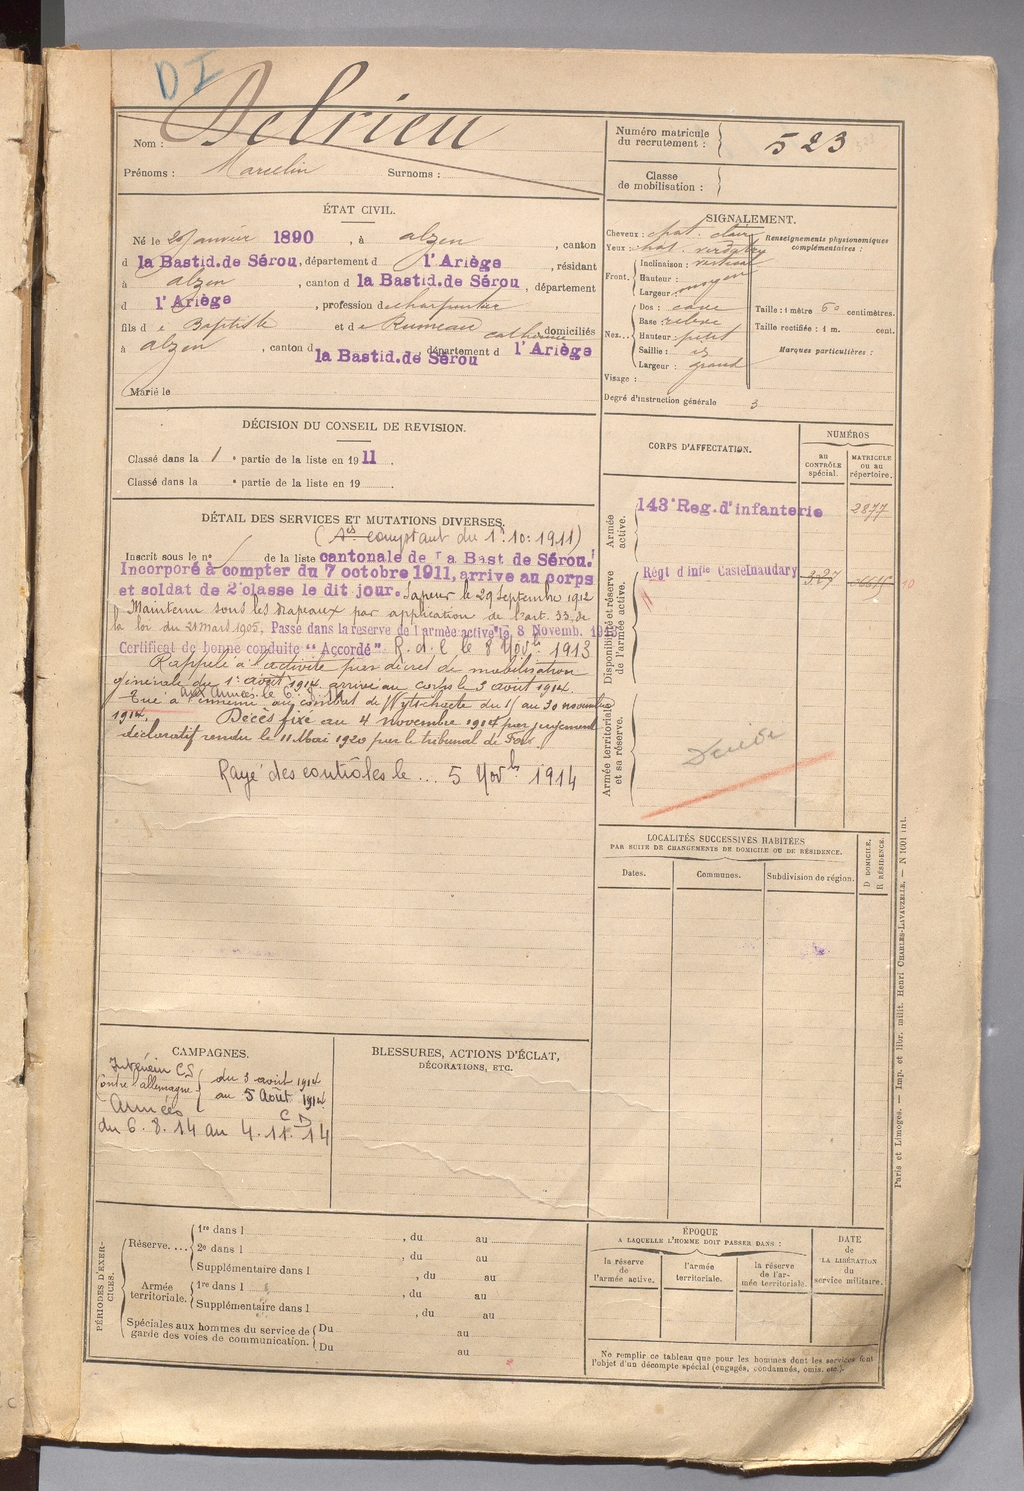 D I
Nom : Delrieu
Prénoms : Marcelin Surnoms :
Numéro matricule
du recrutement : 523
Classe
de mobilisation :
ÉTAT CIVIL.
Né le janvier 1890, à alzen, canton
d la Bastid.de Sérou, département d l'Ariège, résidant
à alzen, canton d la Bastid.de Sérou, département
d l'Ariège, profession de charpentier
fils de Baptiste et de Rumeau Catherine, domiciliés
à alzen, canton d la Bastid.de Sérou département d l'Ariège
Marié le
SIGNALEMENT.
Cheveux : chat. clair
Yeux : chat. verdatre
Front. Inclinaison : vertical
Hauteur :
Largeur : moyen
Nez... Dos : cave
Base : relevé
Hauteur : petit
Saillie :
Largeur : grand
Visage :
Renseignements physionomiques
complémentaires :
Taille : 1 mètre 60 centimètres.
Taille rectifiée : 1 m. cent.
Marques particulières :
Degré d'instruction générale 3
DÉCISION DU CONSEIL DE REVISION.
Classé dans la 1e partie de la liste en 1911.
Classé dans la e partie de la liste en 19
DÉTAIL DES SERVICES ET MUTATIONS DIVERSES.
(Ses comptant du 1er.10.1911)
Inscrit sous le n° de la liste cantonale de La Bast de Sérou.
Incorporé à compter du 7 octobre 1911, arrive au corps
et soldat de 2e classe le dit jour. Sapeur le 29 Septembre 1912
Maintenu sous les drapeaux par application de l'art. 33 de
la loi du 21 Mars 1905. Passé dans la reserve de l'armée active le 8 Novemb. 1913
Certificat de bonne conduite "Accordé" R.d.C le 8 Novbre 1913
Rappelé à l'activité par décret de mobilisation
générale du 1er août 1914 arrivé au corps le 3 août 1914.
Aux Armées le 6.8.14
Tué à l'ennemi au combat de Wytschaete du 1 au 30 novembre
1914. Décès fixé au 4 novembre 1914 par jugement
déclaratif rendu le 11 Mai 1920 par le tribunal de Foix.
Rayé des contrôles le ... 5 Novbre 1914
CORPS D'AFFECTATION.
NUMÉROS
AU
CONTRÔLE
spécial.
MATRICULE
ou au
répertoire.
Armée
active.
143e Reg. d'infanterie 2877
Disponibilité et réserve
de l'armée active.
Régt d'Infie Castelnaudary 327 10
Armée territoriale
et sa réserve.
LOCALITÉS SUCCESSIVES HABITÉES
PAR SUITE DE CHANGEMENTS DE DOMICILE OU DE RÉSIDENCE.
Dates.
Communes.
Subdivision de région.
D DOMICILE.
R RÉSIDENCE.
CAMPAGNES.
Intérieur CS
Contre l'allemagne
du 3 août 1914
au 5 Août 1914
Armées C D
du 6.8.14 au 4.11.14
BLESSURES, ACTIONS D'ÉCLAT,
DÉCORATIONS, ETC.
PÉRIODES D'EXER-
CICES.
Réserve....
1re dans l , du au
2e dans l , du au
Supplémentaire dans l , du au
Armée
territoriale.
1re dans l , du au
Supplémentaire dans l , du au
Spéciales aux hommes du service de
garde des voies de communication.
Du au
Du au
ÉPOQUE
A LAQUELLE L'HOMME DOIT PASSER DANS :
la réserve
de l'armée active.
l'armée
territoriale.
la réserve
de l'ar-
mée territoriale.
DATE
de
LA LIBÉRATION
du
service militaire.
Ne remplir ce tableau que pour les hommes dont les services font
l'objet d'un décompte spécial (engagés, condamnés, omis, etc.).
Paris et Limoges. — Imp. et libr. milit. Henri CHARLES-LAVAUZELLE. — N 1001 int.